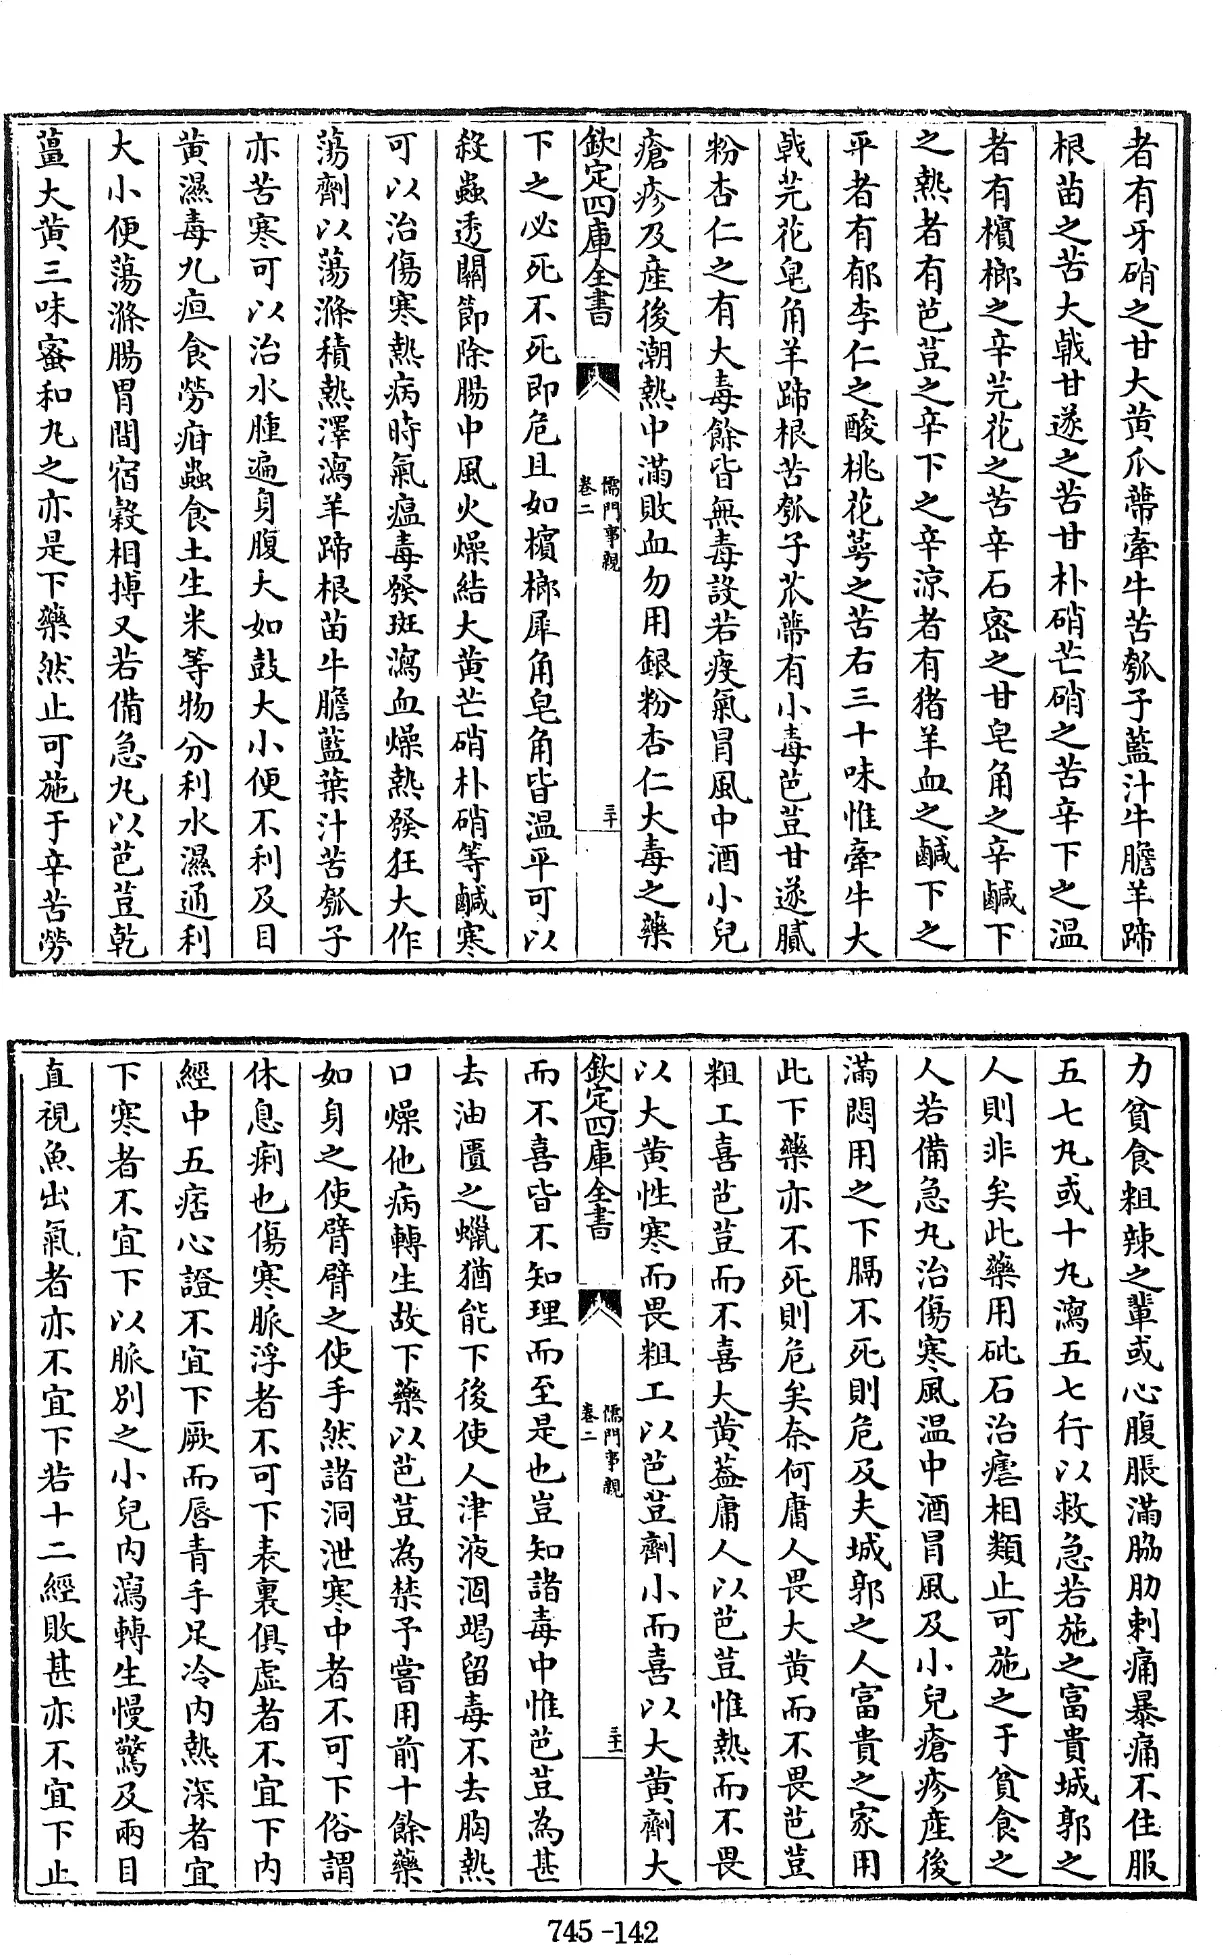 者有牙硝之甘大黄爪蔕牽牛苦瓠子藍汁牛膽羊蹄
根苗之苦大戟甘遂之苦甘朴硝芒硝之苦辛下之温
者有檳榔之辛芫花之苦辛石密之甘皂角之辛鹹下
之熱者有芭荳之辛下之辛涼者有猪羊血之鹹下之
平者有郁李仁之酸桃花萼之苦右三十味惟牽牛大
戟芫花皂角羊蹄根苦瓠子苽蔕有小毒芭荳甘遂膩
粉杏仁之有大毒餘皆無毒設若疫氣冒風中酒小兒
瘡疹及産後潮熱中滿敗血勿用銀粉杏仁大毒之藥
欽定四庫全書
儒門事親
卷二
三十
下之必死不死即危且如檳榔犀角皂角皆温平可以
殺蟲透關節除腸中風火燥結大黄芒硝朴硝等鹹寒
可以治傷寒熱病時氣瘟毒發斑瀉血燥熱發狂大作
蕩劑以蕩滌積熱澤瀉羊蹄根苗牛膽藍葉汁苦瓠子
亦苦寒可以治水腫遍身腹大如鼓大小便不利及目
黄濕毒九疸食勞疳蟲食土生米等物分利水濕通利
大小便蕩滌腸胃間宿穀相搏又若備急丸以芭荳乾
薑大黄三味蜜和丸之亦是下藥然止可施于辛苦勞
力貧食粗辣之輩或心腹脹滿脇肋刺痛暴痛不住服
五七丸或十丸瀉五七行以救急若施之富貴城郭之
人則非矣此藥用砒石治瘧相類止可施之于貧食之
人若備急丸治傷寒風温中酒冒風及小兒瘡疹産後
滿悶用之下膈不死則危及夫城郭之人富貴之家用
此下藥亦不死則危矣奈何庸人畏大黄而不畏芭荳
粗工喜芭荳而不喜大黄葢庸人以芭荳惟熱而不畏
以大黄性寒而畏粗工以芭荳劑小而喜以大黄劑大
欽定四庫全書
儒門事親
卷二
三十一
而不喜皆不知理而至是也豈知諸毒中惟芭荳為甚
去油匱之蠟猶能下後使人津液涸竭留毒不去胸熱
口燥他病轉生故下藥以芭荳為禁予嘗用前十餘藥
如身之使臂臂之使手然諸洞泄寒中者不可下俗謂
休息痢也傷寒脈浮者不可下表裏俱虚者不宜下内
經中五痞心證不宜下厥而唇青手足冷内熱深者宜
下寒者不宜下以脈別之小兒内瀉轉生慢驚及兩目
直視魚出氣者亦不宜下若十二經敗甚亦不宜下止
745-142